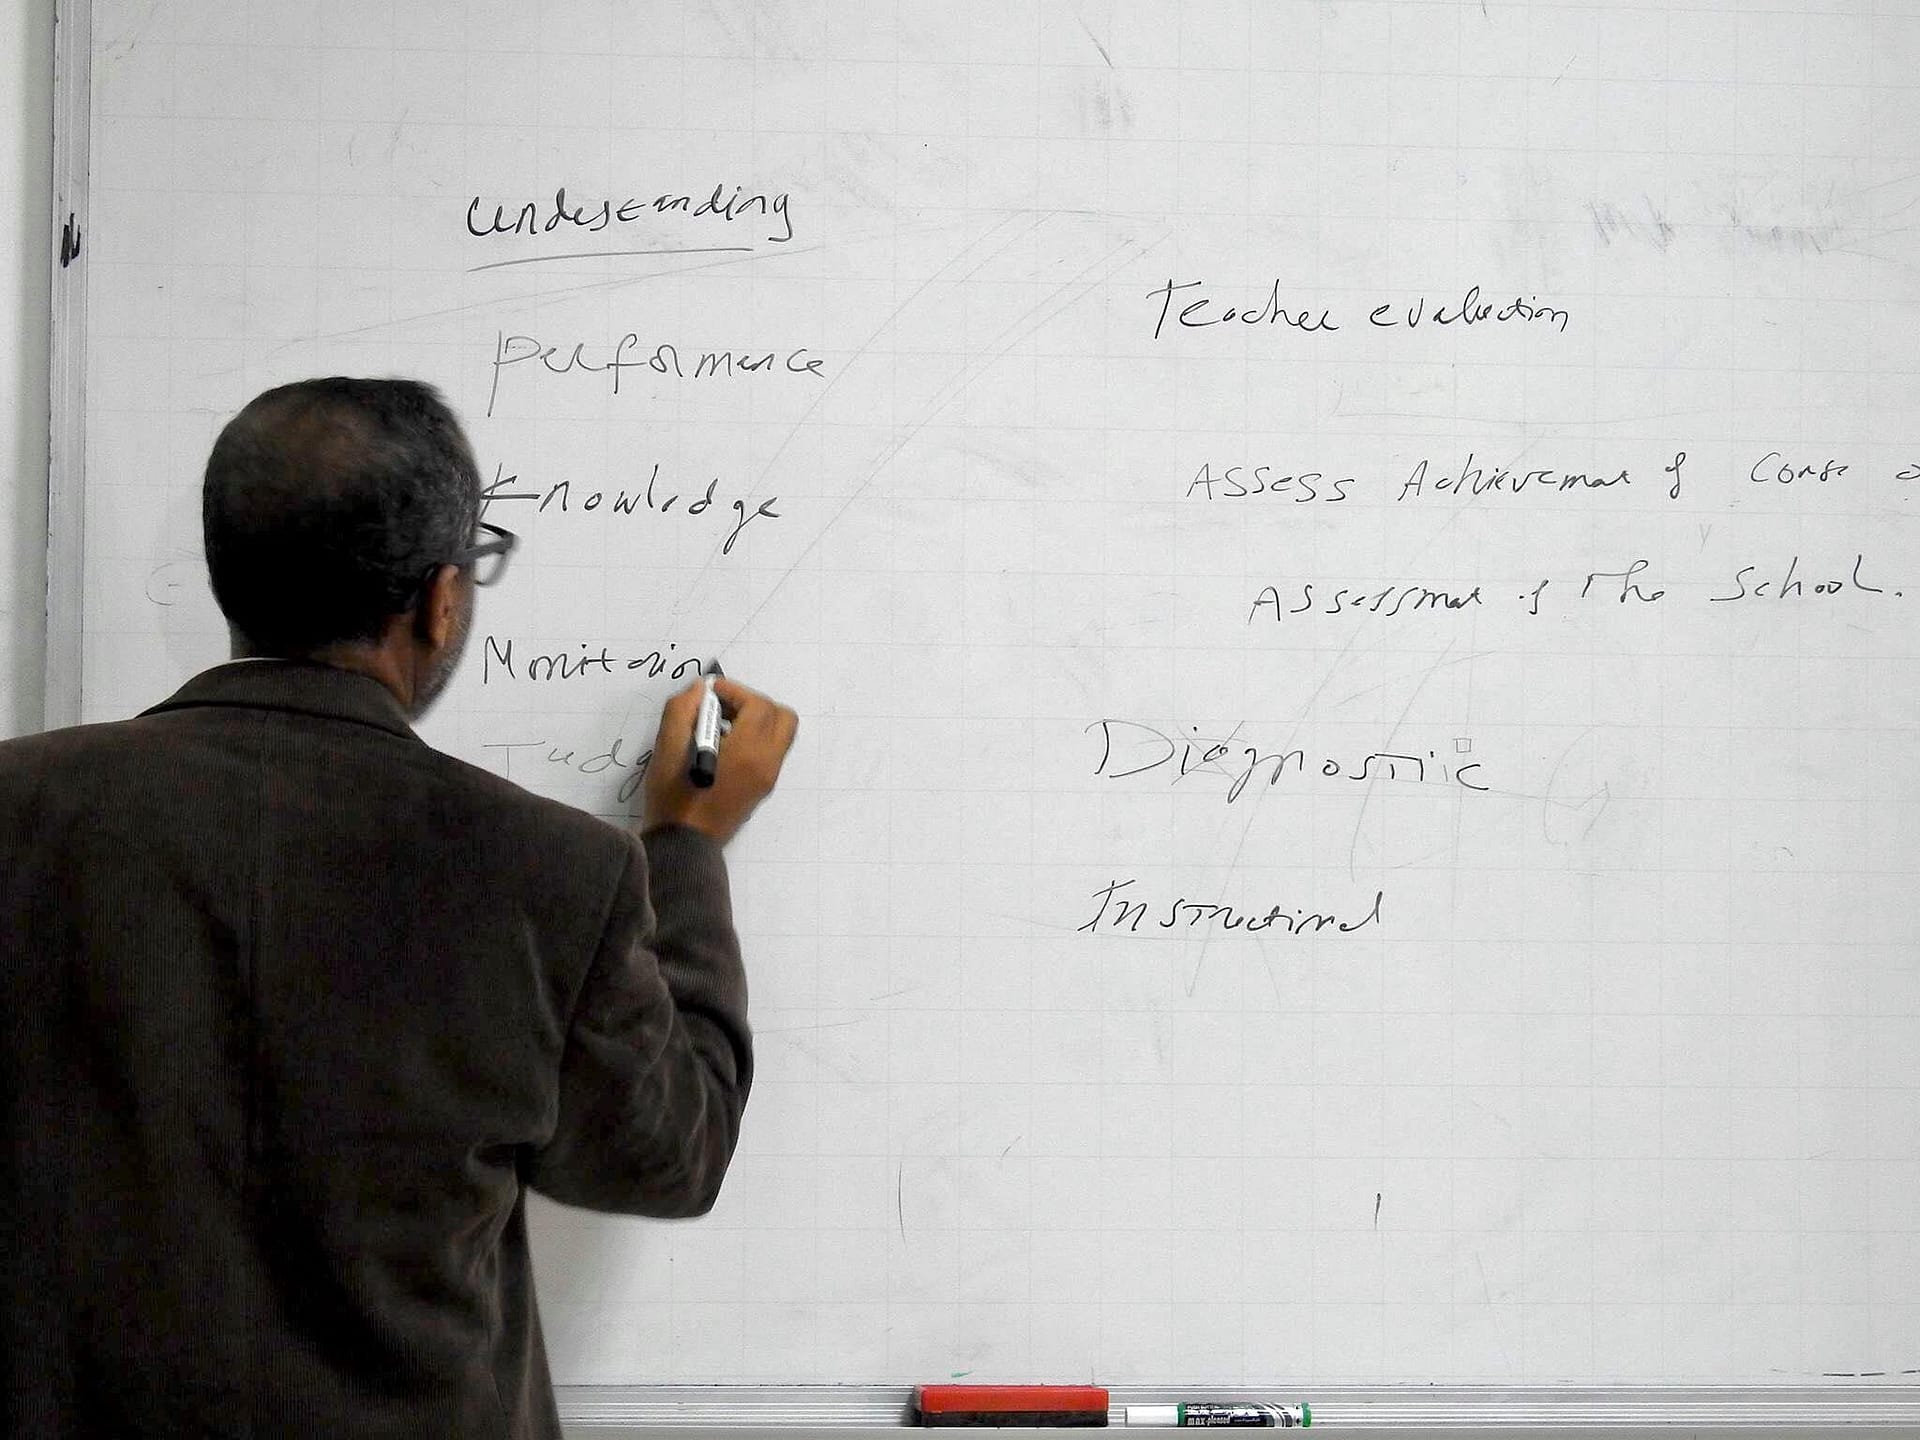 Understanding
Performance
Knowledge
Monitorin
Judg
Teacher evaluation
Assess Achievement of
Assessment of The School.
Diagnostic
Instructional